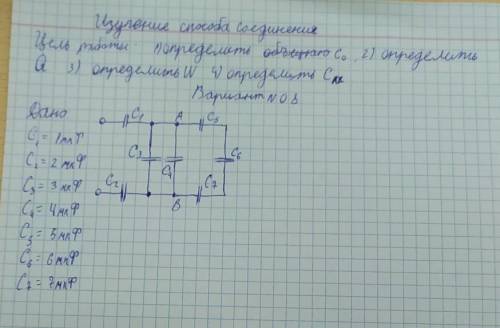 Изучение способа соединения
Цель работы 1) определить C₀, 2) определить
Q 3) определить W 4) определить C
Вариант N 08
Дано
C₁ = 1 мкФ
C₂ = 2 мкФ
C₃ = 3 мкФ
C₄ = 4 мкФ
C₅ = 5 мкФ
C₆ = 6 мкФ
C₇ = 7 мкФ
C₁ A C₅
C₃ C₄ C₆
C₂ B C₇